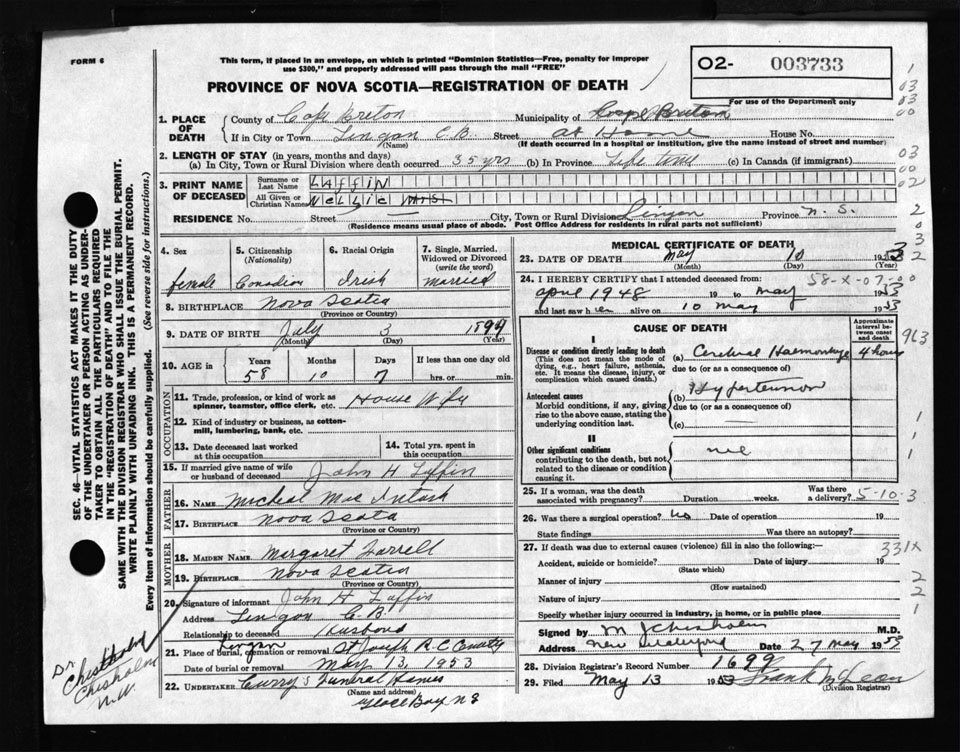 FORM 6
This form, if enclosed in an envelope, on which is printed "Dominion Statistics—Free, penalty for improper
use $300," and properly addressed will pass through the mail "FREE"
PROVINCE OF NOVA SCOTIA—REGISTRATION OF DEATH
02- 003733
For use of the Department only
1. PLACE OF DEATH
County of Cape Breton Municipality of Cape Breton
If in City or Town Lingan C.B. Street at Home House No.
(Name) (If death occurred in a hospital or institution, give the name instead of street and number)
2. LENGTH OF STAY (in years, months and days)
(a) In City, Town or Rural Division where death occurred 35 yrs (b) In Province Life time (c) In Canada (if immigrant)
3. PRINT NAME OF DECEASED
Surname or Last Name LAFFIN
All Given or Christian Names NELLIE
RESIDENCE No. Street City, Town or Rural Division Lingan Province N. S.
(Residence means usual place of abode. Post Office Address for residents in rural parts not sufficient)
4. Sex
female
5. Citizenship (Nationality)
Canadian
6. Racial Origin
Irish
7. Single, Married, Widowed or Divorced (write the word)
married
8. BIRTHPLACE Nova Scotia
(Province or Country)
9. DATE OF BIRTH July 3
(Month) (Day) (Year)
10. AGE in Years Months Days If less than one day old
58 10 7 hrs. or min.
OCCUPATION
11. Trade, profession, or kind of work as spinner, teamster, office clerk, etc. House Wife
12. Kind of industry or business, as cotton-mill, lumbering, bank, etc.
13. Date deceased last worked at this occupation
14. Total yrs. spent in this occupation
15. If married give name of wife or husband of deceased John H Laffin
FATHER
16. NAME Micheal Mac Intosh
17. BIRTHPLACE Nova Scotia
(Province or Country)
MOTHER
18. MAIDEN NAME Margaret Farrell
19. BIRTHPLACE Nova Scotia
(Province or Country)
20. Signature of informant John H Laffin
Address Lingan C.B.
Relationship to deceased Husband
21. Place of burial, cremation or removal Lingan St Joseph R C
Date of burial or removal May 13, 1953
22. UNDERTAKER Curry's Funeral Homes
(Name and address)
Glace Bay N S
MEDICAL CERTIFICATE OF DEATH
23. DATE OF DEATH May 10 1953
(Month) (Day) (Year)
24. I HEREBY CERTIFY that I attended deceased from: 58-X-07-00
April 1948 19 to May 1953
and last saw her alive on 10 May 1953
CAUSE OF DEATH
Approximate interval between onset and death
I
Disease or condition directly leading to death (a) Cerebral Haemorrhage 4 hours
(This does not mean the mode of dying, e.g., heart failure, asthenia, etc. It means the disease, injury, or complication which caused death.)
due to (or as a consequence of)
Antecedent causes (b) Hypertension
Morbid conditions, if any, giving rise to the above cause, stating the underlying condition last.
due to (or as a consequence of)
(c)
II
Other significant conditions nil
contributing to the death, but not related to the disease or condition causing it.
25. If a woman, was the death associated with pregnancy? Duration weeks. Was there a delivery? 5-10-3
26. Was there a surgical operation? no Date of operation 19
State findings Was there an autopsy?
27. If death was due to external causes (violence) fill in also the following:— 331X
Accident, suicide or homicide? Date of injury 19
(State which)
Manner of injury
(How sustained)
Nature of injury
Specify whether injury occurred in industry, in home, or in public place
Signed by M J Chisholm M.D.
Address New Waterford Date 27 May 19
28. Division Registrar's Record Number 1699
29. Filed May 13 1953 Frank McLean
(Division Registrar)
SEC. 46—VITAL STATISTICS ACT MAKES IT THE DUTY
OF THE UNDERTAKER OR PERSON ACTING AS UNDER-
TAKER TO OBTAIN ALL THE PARTICULARS REQUIRED
IN THE "REGISTRATION OF DEATH" AND TO FILE THE
SAME WITH THE DIVISION REGISTRAR WHO SHALL ISSUE THE BURIAL PERMIT.
WRITE PLAINLY WITH UNFADING INK. THIS IS A PERMANENT RECORD.
Every item of information should be carefully supplied. (See reverse side for instructions.)
Dr.
Chisholm
Chisholm
N.W.
1
03
03
00
03
00
02
2
0
3
2
963
1
1
1
2
2
1